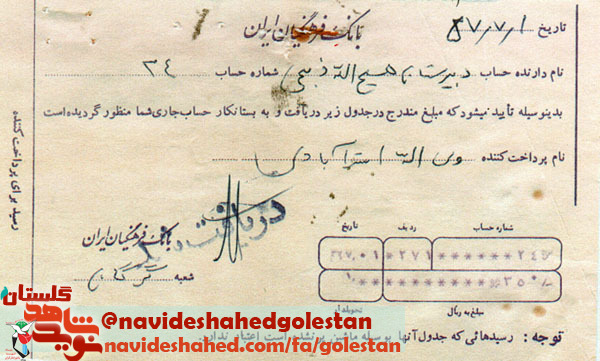 بانک فرهنگیان ایران
تاریخ ۵۷/۷/۱
نام دارنده حساب دبیرستان مسیح الله ذبیحی شماره حساب ۲۴
بدینوسیله تأیید میشود که مبلغ مندرج در جدول زیر دریافت و به بستانکار حساب جاری شما منظور گردیده است
نام پرداخت کننده ولی الله استرآبادی
رسید برای پرداخت کننده
شماره حساب ردیف تاریخ
دریافت شد
بانک فرهنگیان ایران
شعبه گرگان
مبلغ به ریال تحویلدار
توجه : رسیدهائی که جدول آنها بوسیله ماشین پر نشده است اعتبار ندارد
نوید شاهد گلستان
@navideshahedgolestan
navideshahed.com/fa/golestan